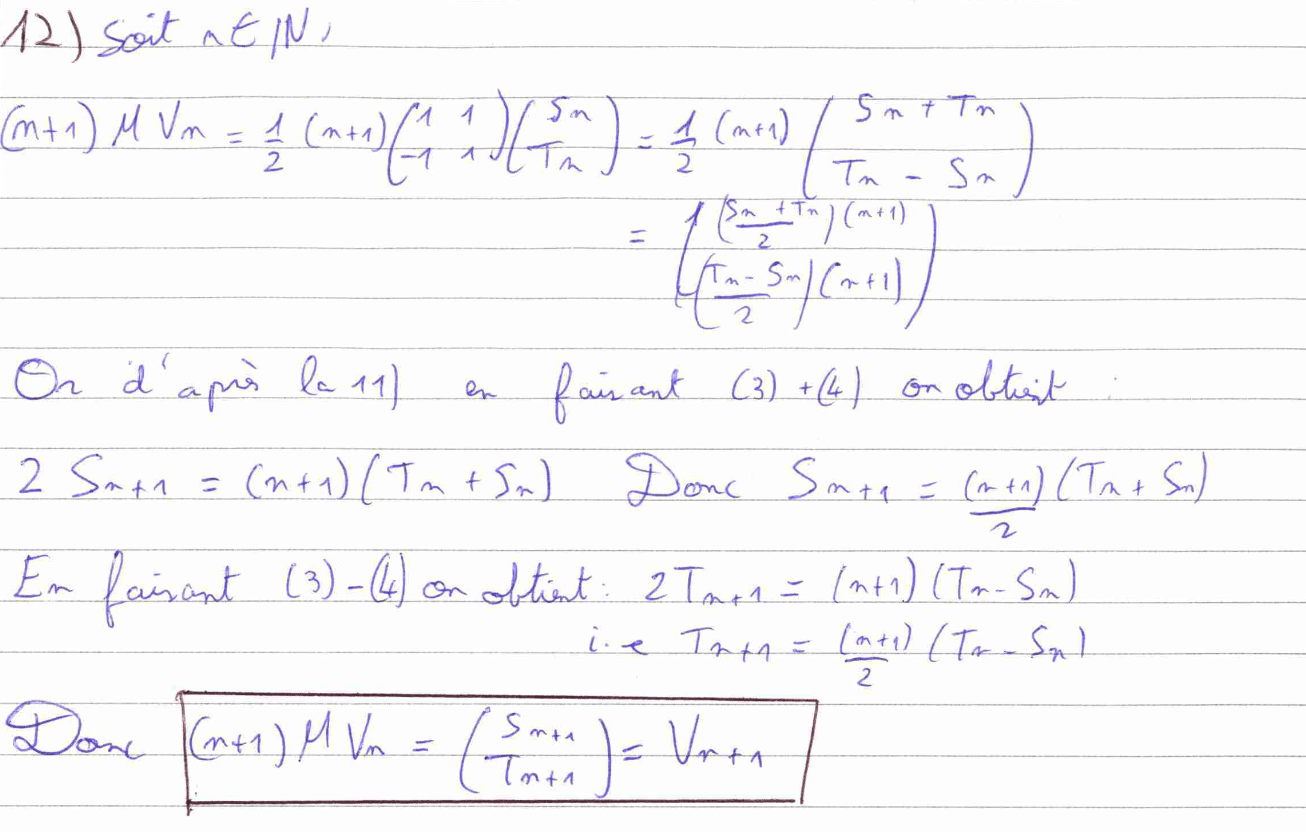 12) Soit n ∈ ℕ,
(n+1) M Vn = 1/2 (n+1) (1 1 ; -1 1) (Sn ; Tn) = 1/2 (n+1) (Sn + Tn ; Tn - Sn)
= ((Sn + Tn)/2 (n+1) ; (Tn - Sn)/2 (n+1))
Or d'après la 11) en faisant (3) + (4) on obtient :
2 Sn+1 = (n+1)(Tn + Sn) Donc Sn+1 = (n+1)/2 (Tn + Sn)
En faisant (3) - (4) on obtient : 2Tn+1 = (n+1)(Tn - Sn)
i.e Tn+1 = (n+1)/2 (Tn - Sn)
Donc (n+1) M Vn = (Sn+1 ; Tn+1) = Vn+1